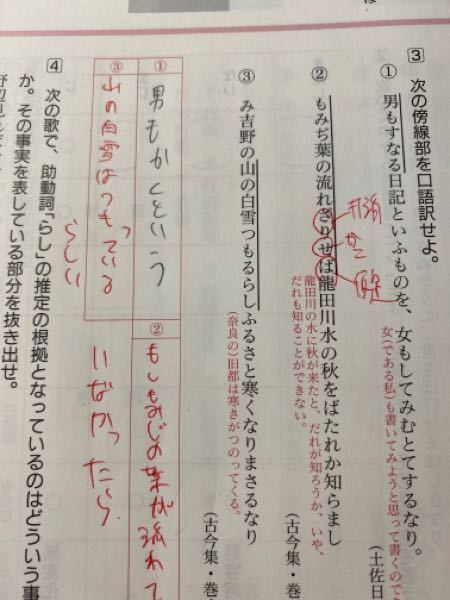 3 次の傍線部を口語訳せよ。
① 男もすなる日記といふものを、女もしてみむとてするなり。
女(である私)も書いてみようと思って書くので
(土佐日
② もみぢ葉の流れざりせば龍田川水の秋をばたれか知らまし
打消
龍田川の水に秋が来たと、だれが知ろうか、いや、
だれも知ることができない。
(古今集・巻
③ み吉野の山の白雪つもるらしふるさと寒くなりまさるなり
(奈良の)旧都は寒さがつのってくる。
(古今集・巻
① 男もかくという
② もしもみじの葉が流れて
いなかったら
③ 山の白雪はつもっている
らしい
4 次の歌で、助動詞「らし」の推定の根拠となっているのはどういう事
か。その事実を表している部分を抜き出せ。